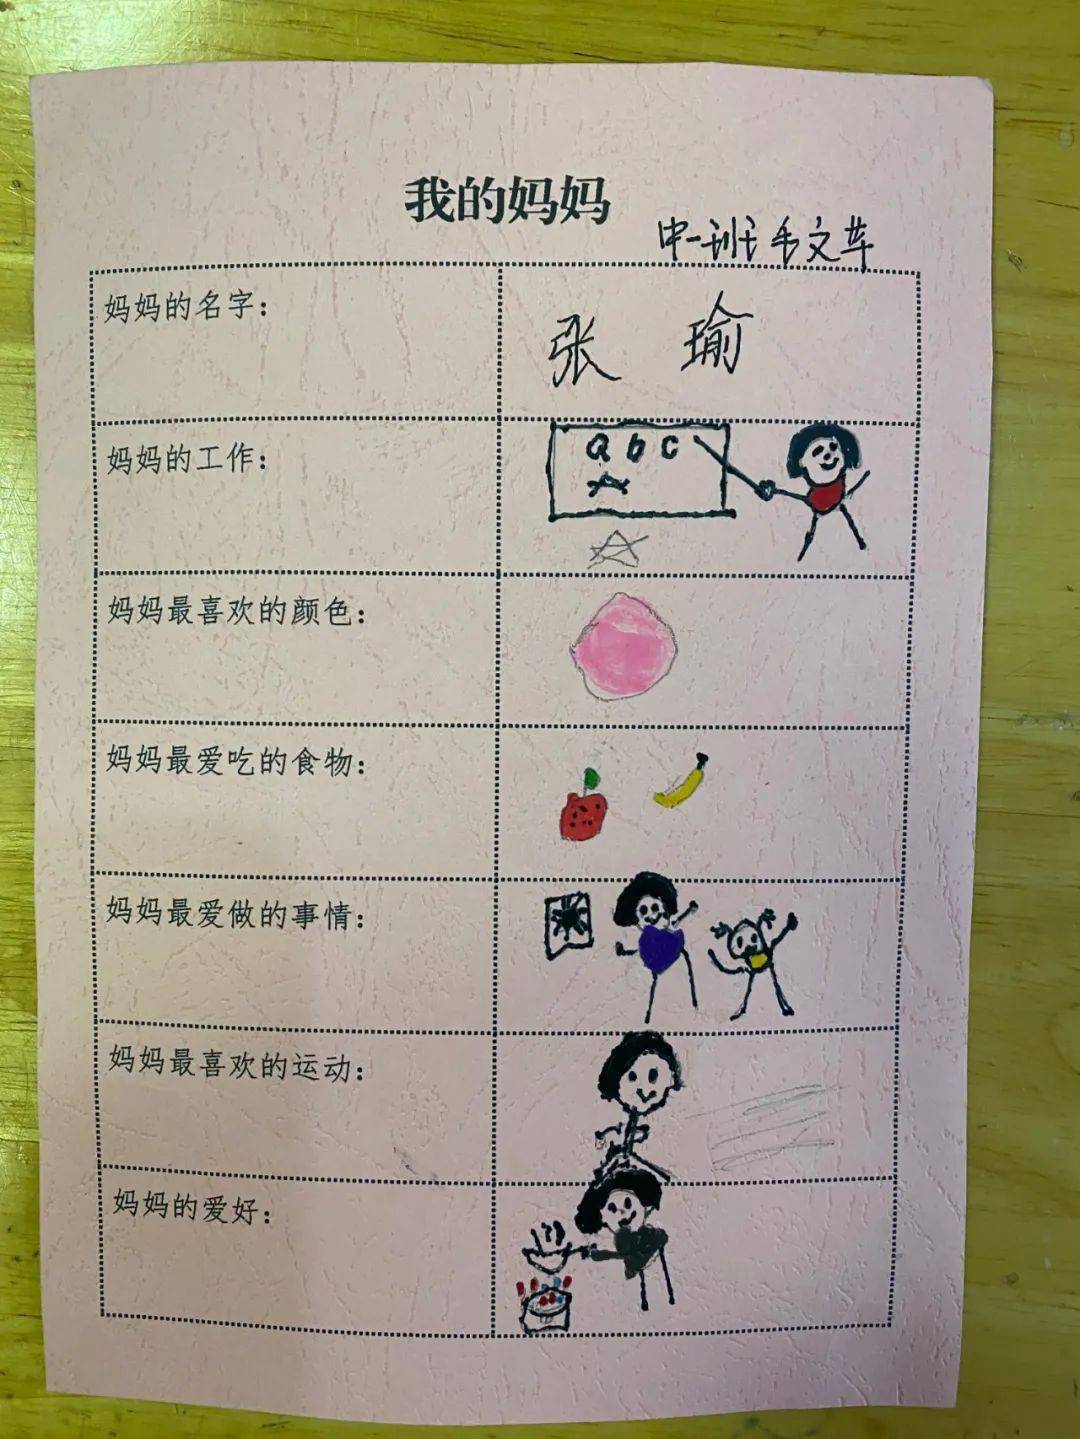 我的妈妈
中一班 毛文苹
妈妈的名字：
张 瑜
妈妈的工作：
a b c
妈妈最喜欢的颜色：
妈妈最爱吃的食物：
妈妈最爱做的事情：
妈妈最喜欢的运动：
妈妈的爱好：